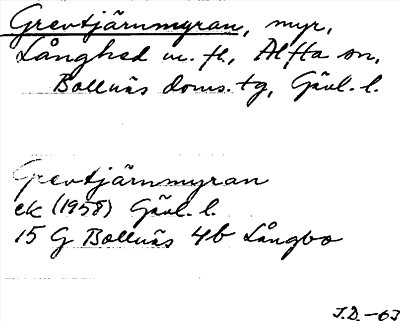 Grevtjärnmyran, myr,
Långhed m. fl., Alfta sn,
Bollnäs doms.tg, Gävl. l.
Grevtjärnmyran
ek (1958) Gävl. l.
15 G Bollnäs 4b Långbo
J.D.-63